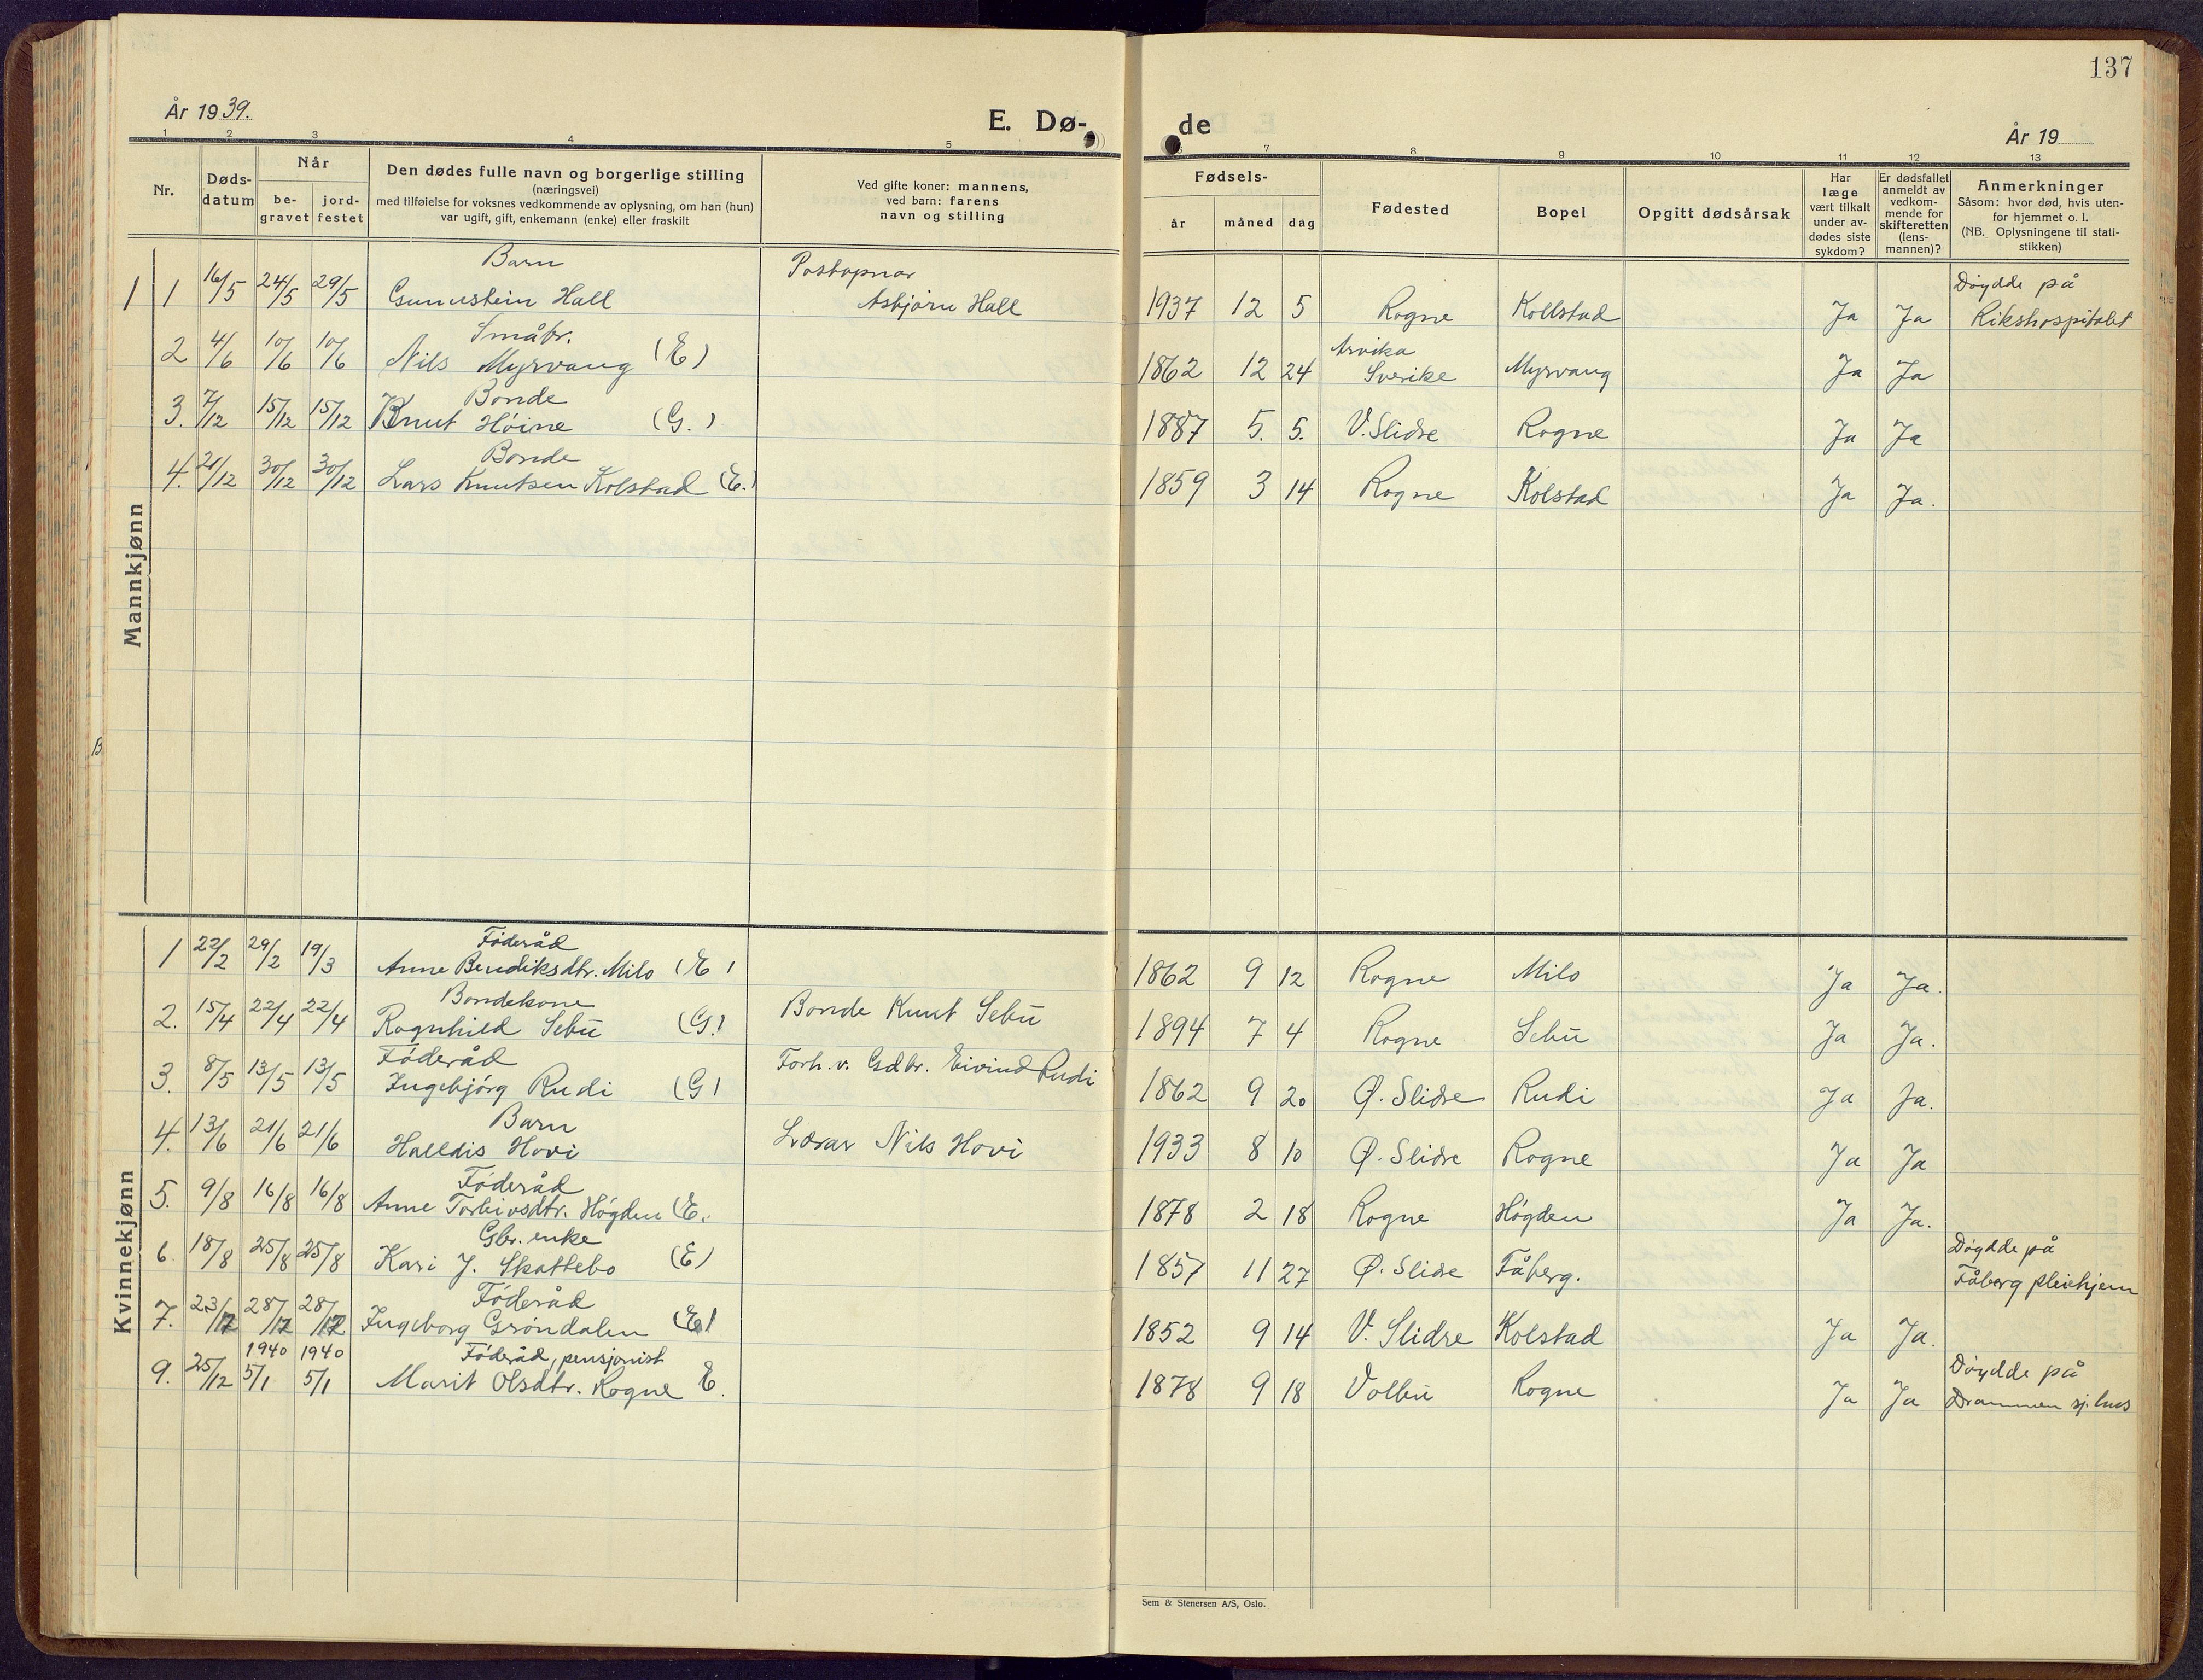 137
År 1939.
E. Dø-
de
År 19
1 2 3 4 5
6 7 8 9 10 11 12 13
Nr.
Døds-
datum
Når
be-
gravet
jord-
festet
Den dødes fulle navn og borgerlige stilling
(næringsvei)
med tilføielse for voksnes vedkommende av oplysning, om han (hun)
var ugift, gift, enkemann (enke) eller fraskilt
Ved gifte koner: mannens,
ved barn: farens
navn og stilling
Fødsels-
år måned dag
Fødested
Bopel
Opgitt dødsårsak
Har
læge
vært tilkalt
under av-
dødes siste
sykdom?
Er dødsfallet
anmeldt av
vedkom-
mende for
skifteretten
(lens-
mannen)?
Anmerkninger
Såsom: hvor død, hvis uten-
for hjemmet o. l.
(NB. Oplysningene til stati-
stikken)
Mannkjønn
Barn Postopnar Døydde på
1 1 16/5 24/5 29/5 Gunnstein Hall Asbjørn Hall 1937 12 5 Rogne Kollstad Ja Ja Rikshospitalet
Småbr. Arvika
2 4/6 10/6 10/6 Nils Myrvang (E) 1862 12 24 Sverike Myrvang Ja Ja
Bonde
3. 7/12 15/12 15/12 Knut Høine (G.) 1887 5. 5. V. Slidre Rogne Ja Ja
Bonde
4. 21/12 30/12 30/12 Lars Knutsen Kolstad (E.) 1859 3 14 Rogne Kolstad Ja Ja.
Kvinnekjønn
Føderåd
1 22/2 29/2 19/3 Anne Bendiksdtr. Milo (E) 1862 9 12 Rogne Milo Ja Ja.
Bondekone
2. 15/4 22/4 22/4 Ragnhild Sebu (G.) Bonde Knut Sebu 1894 7 4 Rogne Sebu Ja Ja.
Føderåd
3. 8/5 13/5 13/5 Ingebjørg Rudi (G) Forh. v. Gdbr. Eivind Rudi 1862 9 20 Ø. Slidre Rudi Ja Ja.
Barn
4. 13/6 21/6 21/6 Halldis Hovi Lærar Nils Hovi 1933 8 10 Ø. Slidre Rogne Ja Ja
Føderåd
5. 9/8 16/8 16/8 Anne Torleivsdtr. Høgden (E. 1878 2 18 Rogne Høgden Ja Ja.
Gbr. enke Døydde på
6. 18/8 25/8 25/8 Kari J. Skattebo (E) 1857 11 27 Ø. Slidre Fåberg. Fåberg pleiehjem
Føderåd
7. 23/12 28/12 28/12 Ingeborg Grøndalen (E) 1852 9 14 V. Slidre Kolstad Ja Ja.
1940 1940 Føderåd, pensjonist Døydde på
9. 25/12 5/1 5/1 Marit Olsdtr. Rogne E. 1878 9 18 Volbu Rogne Ja Ja Drammen sj. hus
Sem & Stenersen A/S, Oslo.